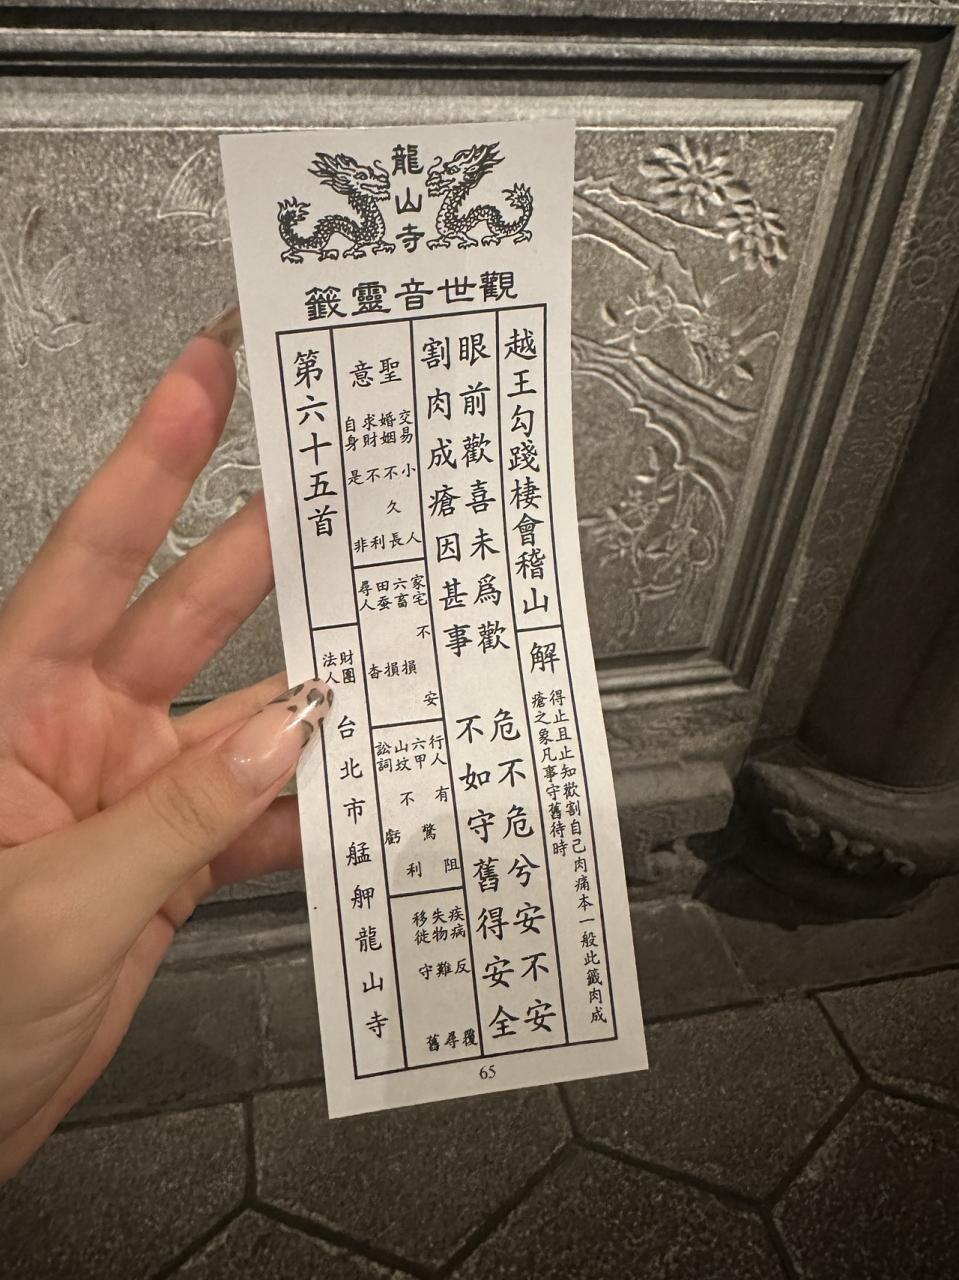 龍山寺
觀世音靈籤
越王勾踐棲會稽山
解
得止且止知歡割自己肉痛本一般此籤肉成
瘡之象凡事守舊待時
眼前歡喜未為歡
危不危兮安不安
割肉成瘡因甚事
不如守舊得安全
聖意
交易 小人
婚姻 不久長
求財 不利
自身 是非
家宅 不安
六畜 損
田蚕 損
尋人 杳
行人 有阻
六甲 驚
山坟 不利
訟詞 虧
疾病 反覆
失物 難尋
移徙 守舊
第六十五首
財團
法人
台北市艋舺龍山寺
65